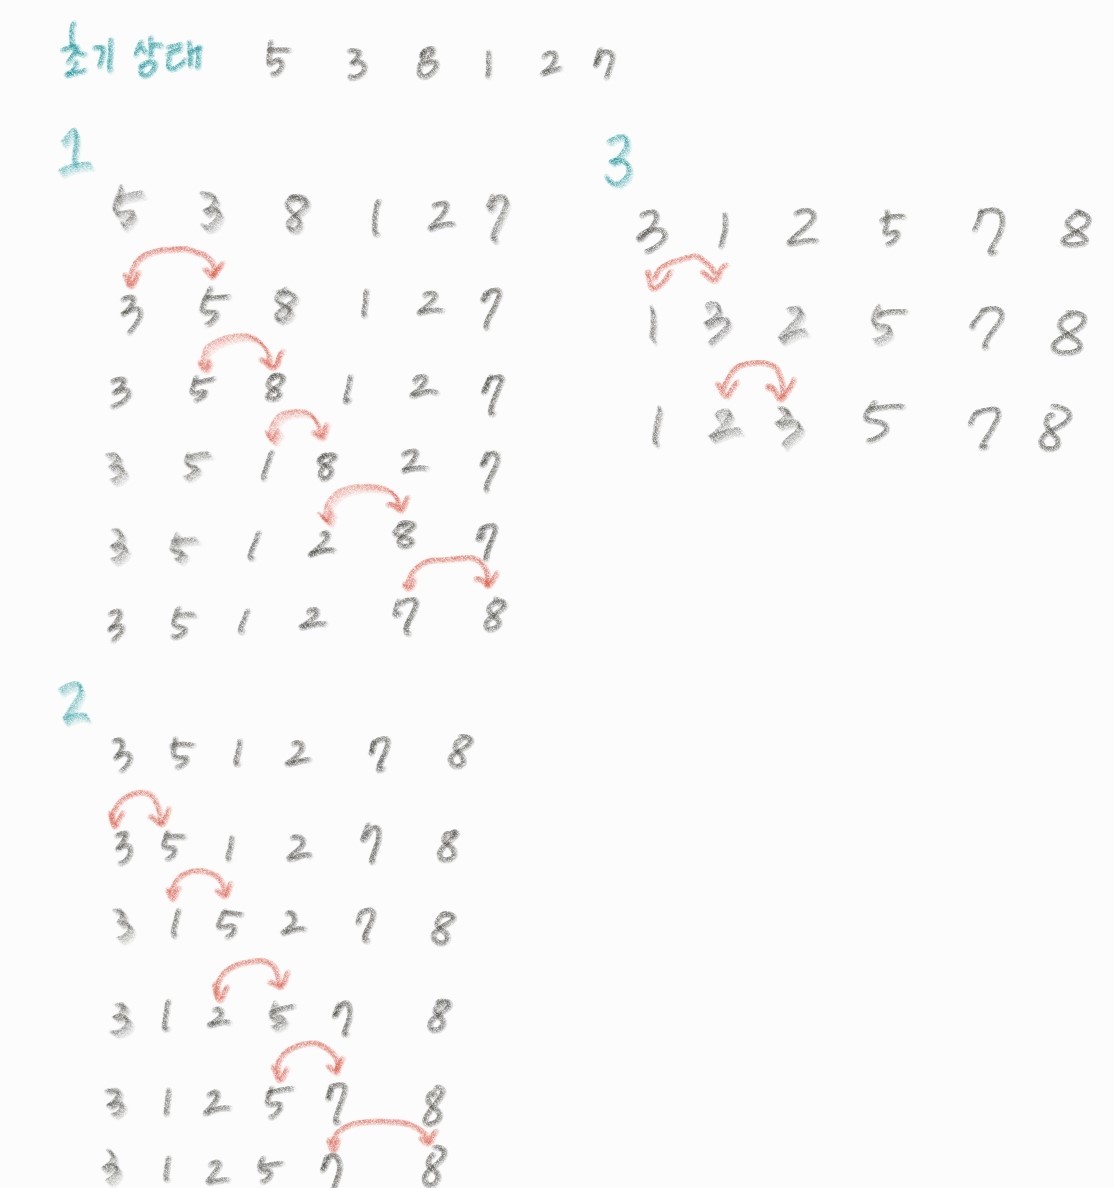 초기 상태 5 3 8 1 2 7
1
5 3 8 1 2 7
3 5 8 1 2 7
3 5 8 1 2 7
3 5 1 8 2 7
3 5 1 2 8 7
3 5 1 2 7 8
2
3 5 1 2 7 8
3 5 1 2 7 8
3 1 5 2 7 8
3 1 2 5 7 8
3 1 2 5 7 8
3 1 2 5 7 8
3
3 1 2 5 7 8
1 3 2 5 7 8
1 2 3 5 7 8